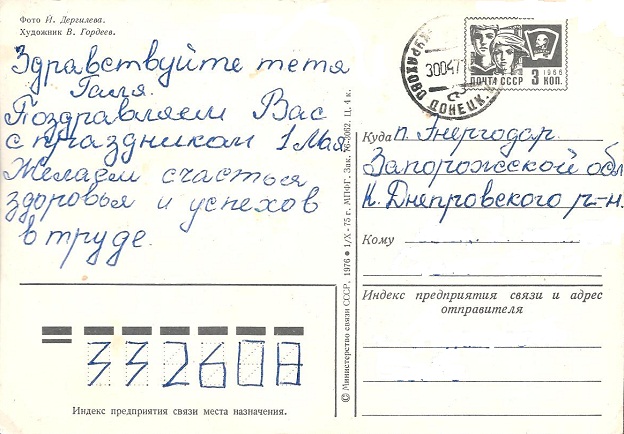 Фото И. Дергилева.
Художник В. Гордеев.
Здравствуйте тетя
Галя.
Поздравляем Вас
с праздником 1 Мая
Желаем счастья
здоровья и успехов
в труде.
332608
Индекс предприятия связи места назначения.
© Министерство связи СССР, 1976 ● 1/X - 75 г. МПФГ. Зак. 76-3062. Ц. 4 к.
КУРАХОВО ДОНЕЦК.
300476
ПОЧТА СССР 3 1966 КОП.
Куда п. Энергодар
Запорожской обл
К. Днепровского р-н.
Кому
Индекс предприятия связи и адрес
отправителя